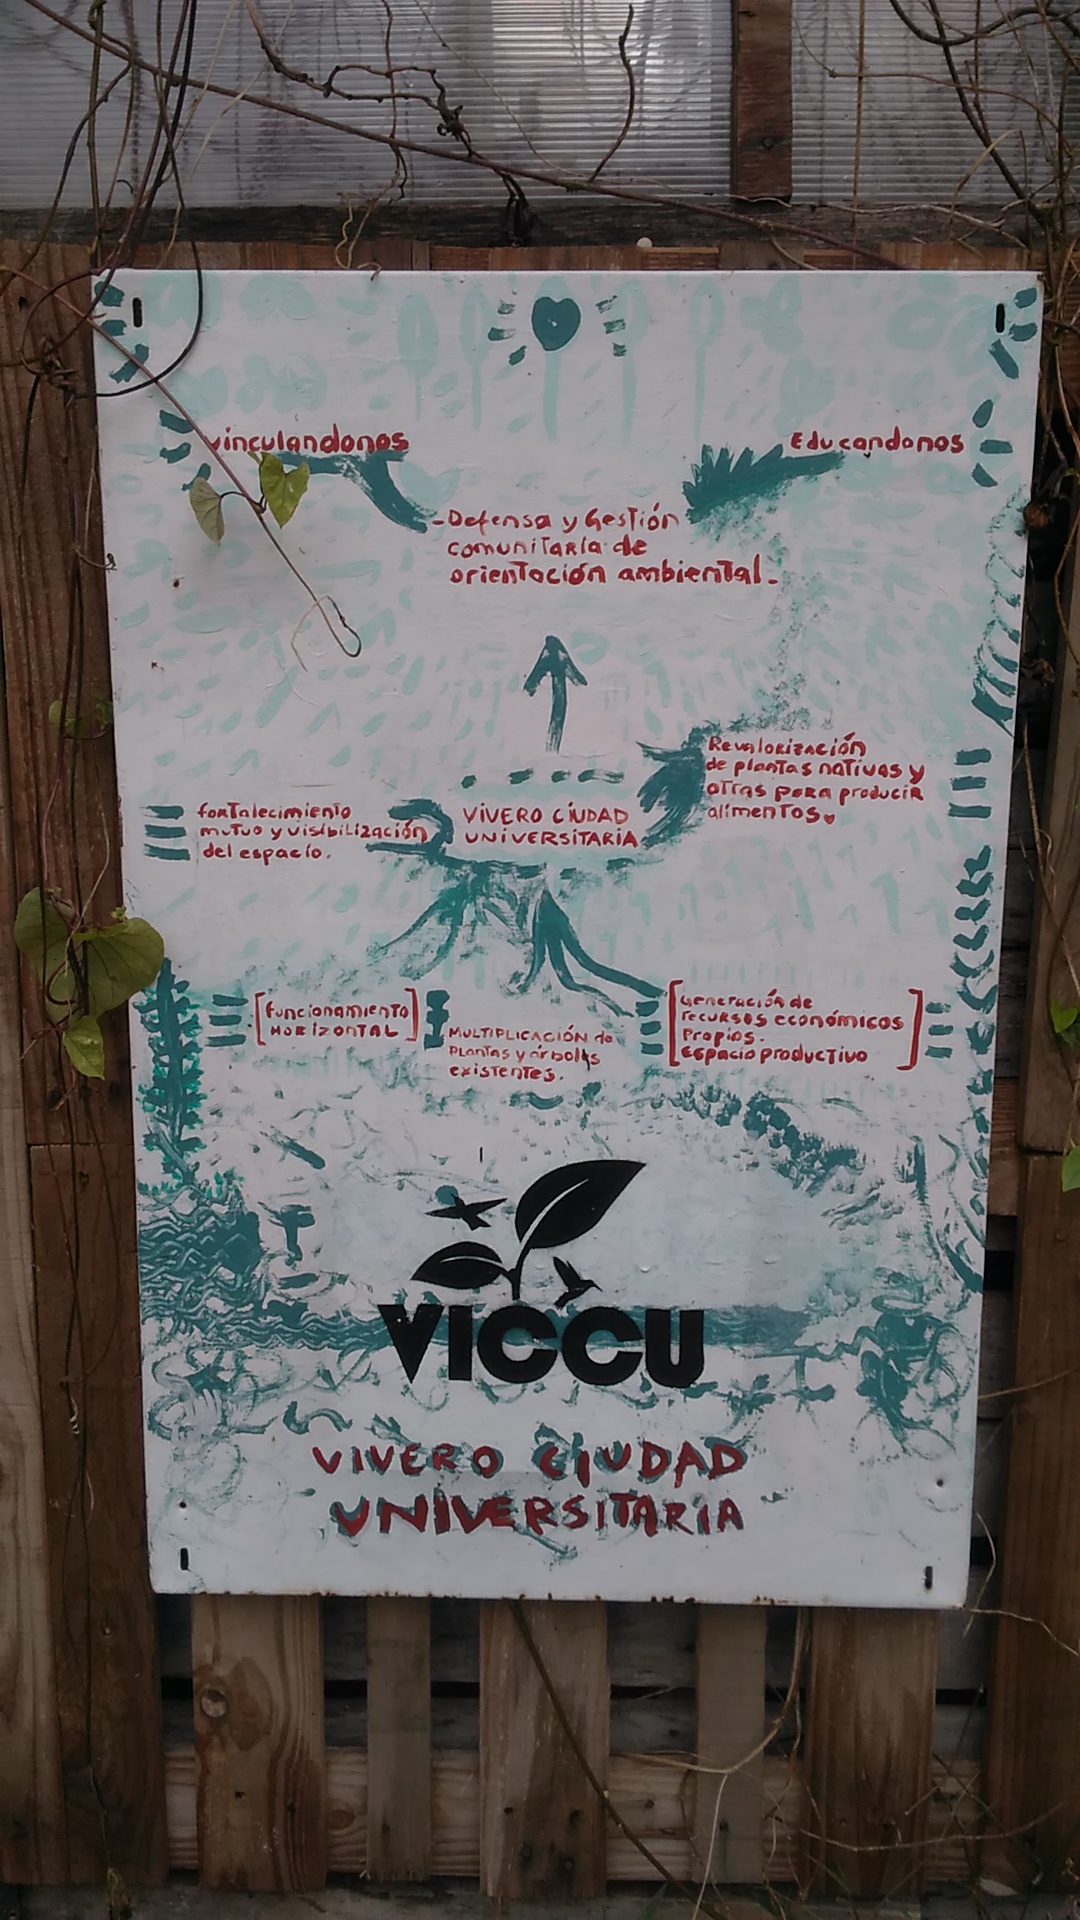 vinculandonos
Educandonos
-Defensa y Gestión
comunitaria de
orientación ambiental-
Revalorización
de plantas nativas y
otras para producir
alimentos
VIVERO CIUDAD
UNIVERSITARIA
fortalecimiento
mutuo y visibilización
del espacio.
[funcionamiento
HORIZONTAL]
MULTIPLICACIÓN de
Plantas y árboles
existentes.
[Generación de
recursos económicos
Propios.
Espacio productivo]
VICCU
VIVERO CIUDAD
UNIVERSITARIA